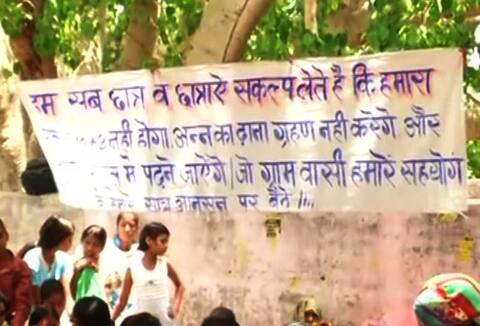 हम सब छात्र व छात्राऐ सकल्प लेते है कि हमारा
नही होगा अन्न का दाना ग्रहण नही करेगे और
मे पढने जाऐगे / जो ग्राम वासी हमारे सहयोग
पर बैठे